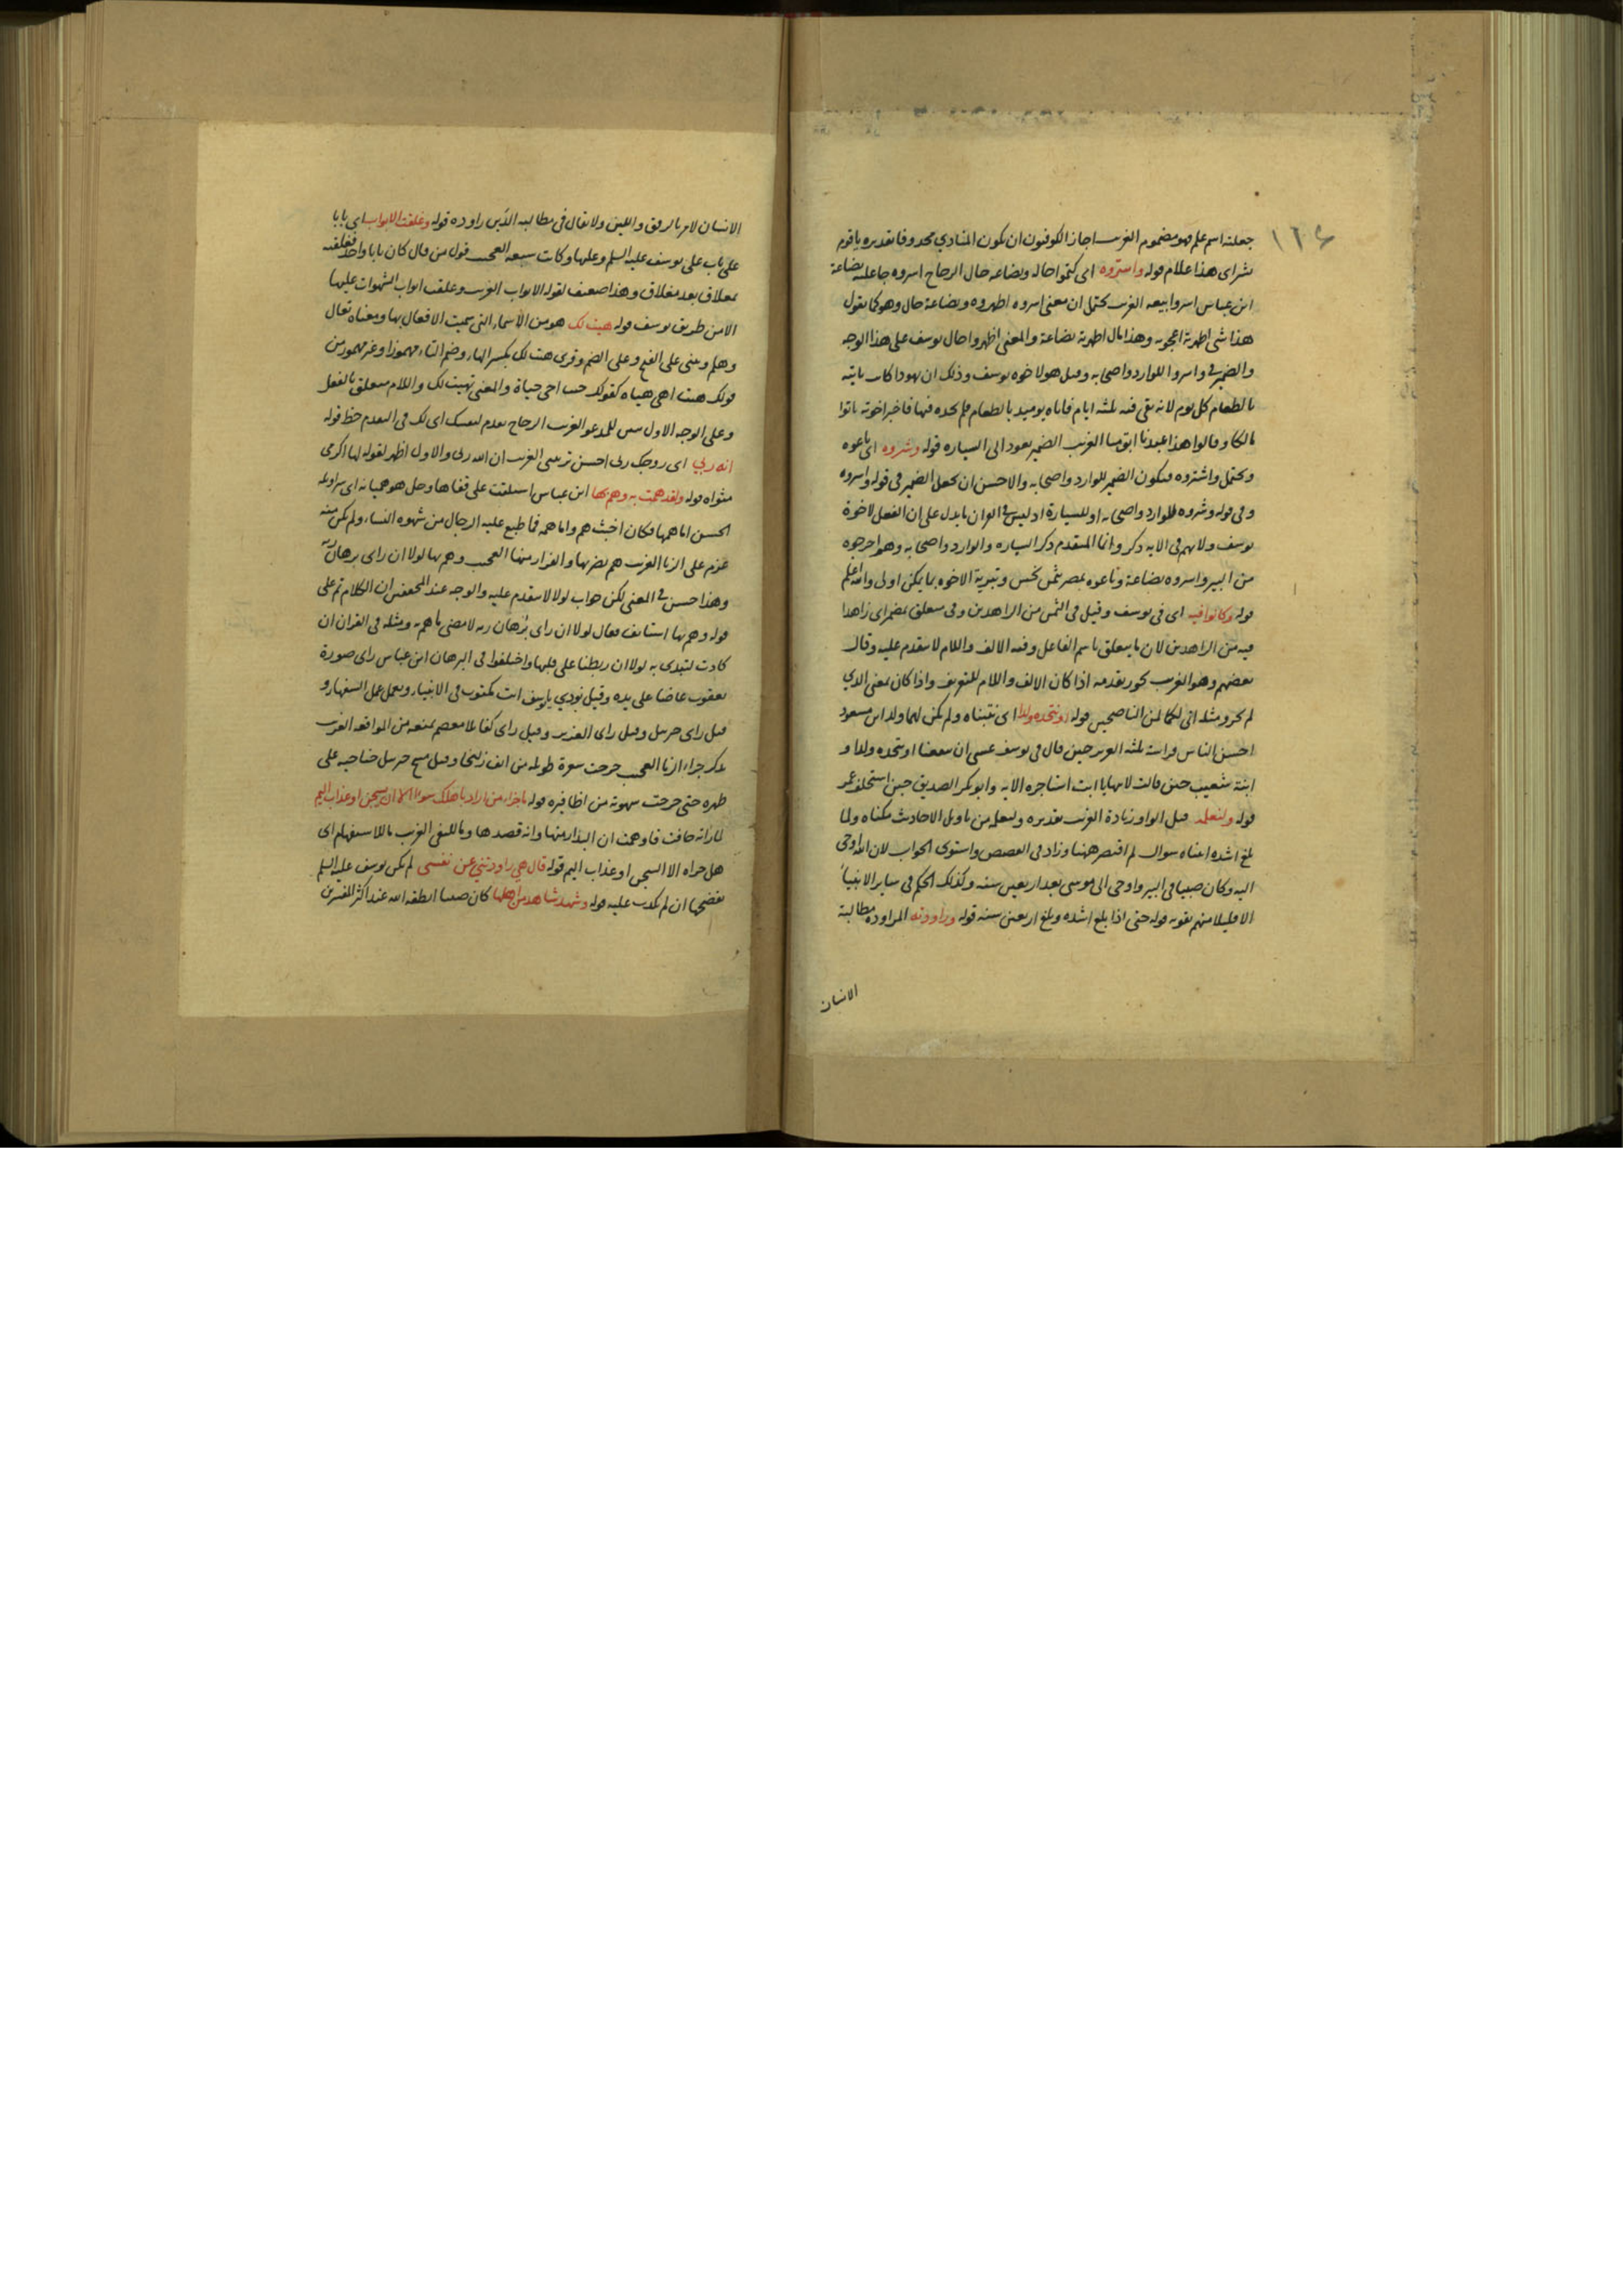 ١٢٤
جعلته اسم علم فهو مضموم الغريب اجاز الكوفيون ان يكون المنادي محذوفا تقديره يا قوم
بشراى هذا غلام قوله واسروه اى كتموا حاله وبضاعة حال الزجاج اسروه جاعليه بضاعة
ابن عباس اسروا بيعه الغريب يحتمل ان معنى اسروه اظهروه وبضاعة حال وهو كما تقول
هذا شى اظهرته اعجوبه وهذا مال اظهرته بضاعة والمعنى اظهروا حال يوسف على هذا الوجه
والضمير في واسروا للوارد واصحابه وقيل هو لاخوه يوسف وذلك ان يهودا كان ياتيه
بالطعام كل يوم لانه بقى فيه ثلثه ايام فاتاه يوميذ بالطعام فلم يجده فيها فاخبر اخوته فاتوا
مالكا وقالوا هذا عبدنا ابق منا الغريب الضمير يعود الى السياره قوله وشروه اى باعوه
ويحتمل واشتروه فيكون الضمير للوارد واصحابه والاحسن ان يجعل الضمير في قوله واسروه
وفى قوله وشروه للوارد واصحابه او للسيارة اذ ليس في القران ما يدل على ان الفعل لاخوة
يوسف ولا لهم في الايه ذكر وانما المتقدم ذكر السياره والوارد واصحابه وهم اخرجوه
من البير واسروه بضاعة وباعوه بمصر بثمن بخس وتبرية الاخوه ما يمكن اولى والله اعلم
قوله وكانوا فيه اى في يوسف وقيل في الثمن من الزاهدين وفى متعلق بمضمر اى زاهدا
فيه من الزاهدين لان ما يتعلق باسم الفاعل وفيه الالف واللام لا يتقدم عليه وقال
بعضهم وهو الغريب يجوز تقدمه اذا كان الالف واللام للتعريف واذا كان بمعنى الذي
لم يجز ومثله انى لكما لمن الناصحين قوله او نتخذه ولدا اى نتبناه ولم يكن لهما ولد ابن مسعود
احسن الناس فراسة ثلثه العزيز حين قال في يوسف عسى ان ينفعنا او نتخذه ولدا و
ابنة شعيب حين قالت لابيها يا ابت استاجره الايه وابو بكر الصديق حين استخلف عمر
قوله ولنعلمه قيل الواو زيادة الغريب تقديره ولنعلمه من تاويل الاحاديث مكناه ولما
بلغ اشده اتيناه سوال لم اقتصر ههنا وزاد في القصص واستوى الجواب لان الله اوحى
اليه وكان صبيا في البير واوحى الى موسى بعد اربعين سنه وكذلك الحكم في ساير الانبيا
الا قليلا منهم يقويه قوله حتى اذا بلغ اشده وبلغ اربعين سنه قوله وراودته المراوده مطالبة
الانسان
الانسان لامر بالرفق واللين ولا يقال في مطالبه الدين راوده قوله وغلقت الابواب اى بابا
على باب على يوسف عليه السلم وعليها وكانت سبعه العجيب قول من قال كان بابا واحدا فغلقته
بمغلاق بعد مغلاق وهذا ضعيف لقوله الابواب الغريب وغلقت ابواب الشهوات عليها
الا من طريق يوسف قوله هيت لك هو من الاسماء التي سميت الافعال بها ومعناه تعال
وهلم وبنى على الفتح وعلى الضم وقرى هئت لك بكسر الهاء وضم التاء مهموزا وغير مهموز من
قولك هئت اهى هياه كقولك جيت اجى جياة والمعنى تهيت لك واللام متعلق بالفعل
وعلى الوجه الاول تبيين للمدعو الغريب الزجاج تقدم لنفسك اى لك في التقدم حظ قوله
انه ربي اى زوجك ربى احسن تربيتى الغريب ان الله ربى والاول اظهر لقوله لها اكرمى
مثواه قوله ولقد همت به وهم بها ابن عباس استلقت على قفاها وحل هو هميانه اى سراويله
الحسن اما همها فكان اخبث هم واما همه فما طبع عليه الرجال من شهوه النساء ولم يكن منه
عزم على الزنا الغريب هم بضربها والفرار منها العجيب وهم بها لولا ان راى برهان ربه
وهذا حسن في المعنى لكن جواب لولا لا يتقدم عليه والوجه عند المحققين ان الكلام تم على
قوله وهم بها استانف فقال لولا ان راى برهان ربه لامضى ما هم به ومثله في القران ان
كادت لتبدى به لولا ان ربطنا على قلبها واختلفوا في البرهان ابن عباس راى صورة
يعقوب عاضا على يده وقيل نودي يا يوسف انت مكتوب في الانبياء وتعمل عمل السفهاء و
قيل راى جبريل وقيل راى العزيز وقيل راى كفا بلا معصم يمنعه من المواقعه الغريب
ذكر جزاء الزنا العجيب خرجت شعرة طويلة من انف زليخا وقيل مسح جبريل جناحيه على
ظهره حتى خرجت شهوته من اظافيره قوله ما جزاء من اراد باهلك سوءا الا ان يسجن او عذاب اليم
لما راته خافت فاوهمت ان البدار منها وانه قصدها وما للنفى الغريب ما للاستفهام اى
هل جزاه الا السجن او عذاب اليم قوله قال هي راودتني عن نفسى لم يكن يوسف عليه السلم
يفضحها ان لم تكذب عليه قوله وشهد شاهد من اهلها كان صبيا انطقه الله عند اكثر المفسرين